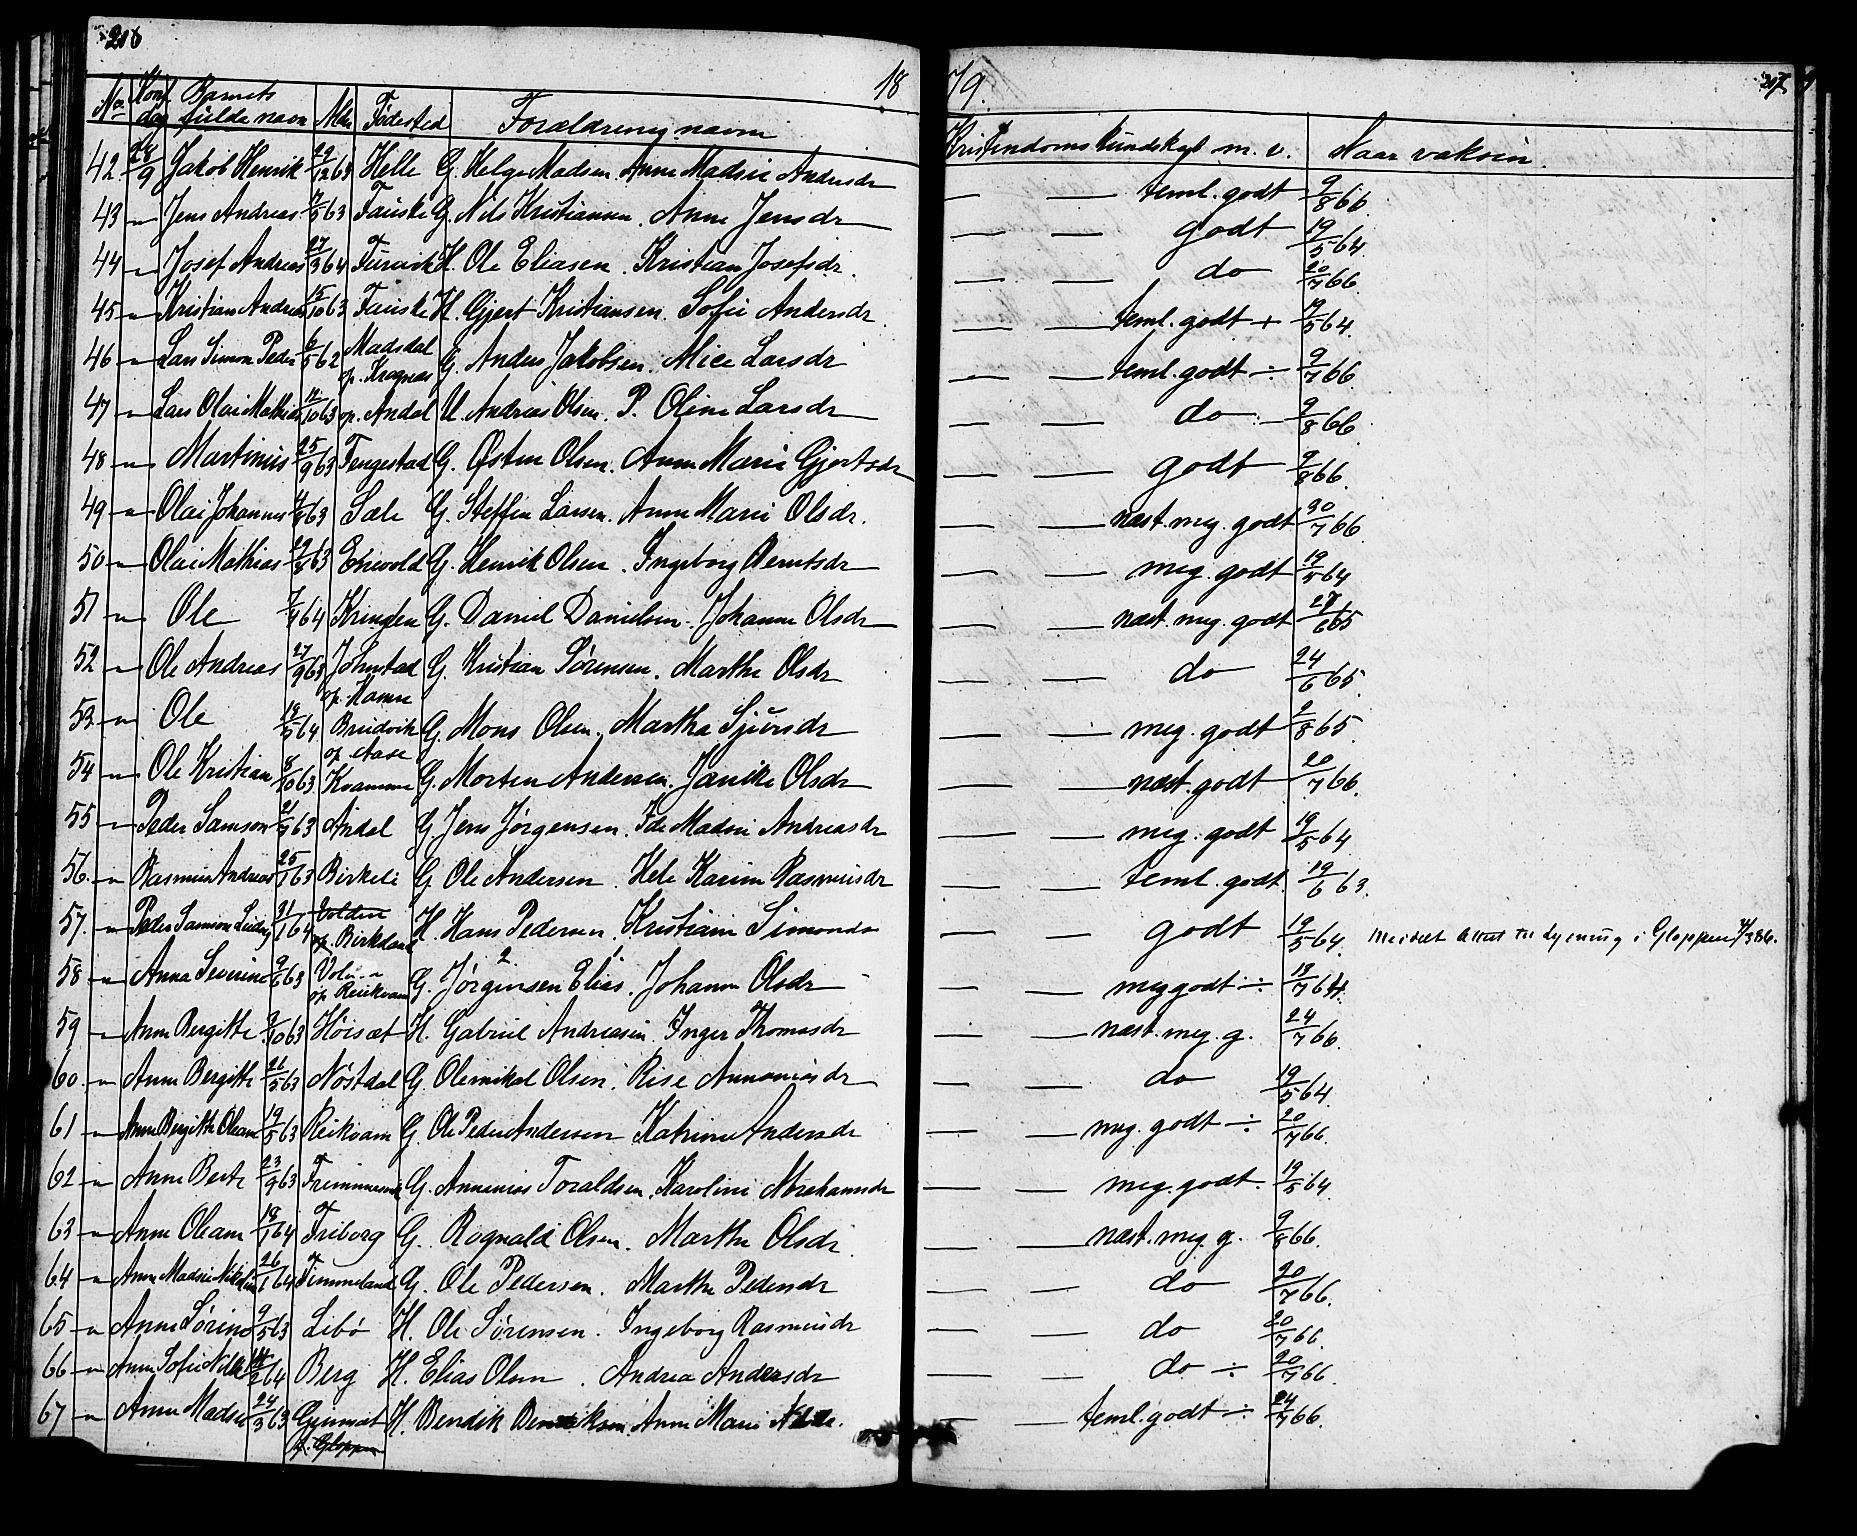 216
18 79. 217
No Konf. dag Barnets fulde navn Alder Fødested Forældrenes navn Kristendomskundskab m. v. Naar vaksin.
42. 28/9 Jakob Henrik 29/12 63 Helle G. Helge Madsen. Anne Madsie Andersdr — — teml. godt 9/8 66.
43 " Jens Andreas 7/5 63 Fauske G. Nils Kristiansen. Anne Jensdr — — godt 19/5 64.
44 " Josef Andreas 27/3 64 Furevik H. Ole Eliasen. Kristian Josefsdr. — — do 20/7 66.
45 " Kristian Andreas 15/10 63 Fauske H. Gjert Kristiansen. Sofie Andersdr. — — teml. godt + 19/5 64.
46 " Lars Simon Peder 6/5 62 Madsdal op. Kragnæs G. Anders Jakobsen. Alice Larsdr — — teml. godt ÷ 9/7 66
47 " Lars Olai Mathias 12/10 63 op. Andal U. Andreas Olsen. P. Oline Larsdr — — do 9/8 66
48 " Martinus 25/9 63 Tengestad G. Østen Olsen. Anne Marie Gjertsdr — — godt 9/8 66.
49 " Olai Johannes 63 Sæle G. Steffen Larsen. Anne Marie Olsdr. — — næst. meg. godt 20/7 66.
50 " Olai Mathias 63 Espevold G. Henrik Olsen. Ingeborg Berntsdr — — meg. godt 19/5 64
51 " Ole 64 Kringlen G. Daniel Danielsen. Johanne Olsdr — — næst. meg. godt 27/6 65
52 " Ole Andreas 27/9 63 Johnstad G. Kristian Sørensen. Marthe Olsdr — — do 24/6 65.
53 " Ole 64 op. Hamre Brudvik G. Mons Olsen. Martha Sjursdr — — meg. godt 2/8 65.
54 " Ole Kristian 8/10 63 op. Aase Kvamme G. Morten Andersen. Janike Olsdr — — næst. godt 20/7 66.
55 " Peder Samson 63 Andal G. Jens Jørgensen. Ide Madsie Andreasdr — — meg. godt 19/5 64
56. " Rasmus Andreas 63 Birkeli G. Ole Andersen. Hele Karine Rasmusdr — — teml. godt. 19/6 63.
57. " Peder Samson Ludvig 31/1 64 Volden op. Birkeland H. Hans Pedersen. Kristiane Simonsdr — — godt 19/5 64. Meldt attest til dyening i Gloppen 386.
58 " Anna Severine 9/6 63 op. Reikvam G. Jørgensen 2 Elias 1. Johanne Olsdr — — meg godt ÷ 13/7 64.
59 " Anne Bergitte 9/10 63 Høisæt H. Gabriel Andreasen. Inger Thomasdr — — næst. meg. g. 24/7 66.
60. " Anne Bergitte 26/5 63 Nøstdal G. Olemikal Olsen. Rise Annaniasdr — — do 19/5 64.
61 " Anne Bergitte Oleane 19/5 63 Reikvam G. Ole Peder Andersen Katrine Andersdr — — meg. godt ÷ 20/7 66.
62 " Anne Berte 23/9 63 Fremmesvik G. Annanias Toraldsen. Karoline Abrahamsdr — — meg. godt. 19/5 64.
63 " Anne Oleane 19/1 64 Friborg G. Rognald Olsen. Marthe Olsdr. — — næst. meg. g. 9/8 66.
64 " Anne Madsie Nikoline 26/1 64 Timmeland G. Ole Pedersen. Marthe Pedersdr — — do 20/7 66.
65 " Anne Sørine 9/5 63 Libø H. Ole Sørensen. Ingeborg Rasmusdr — — do 20/7 66.
66 " Anne Sofie 64 Berg H. Elias Olsen. Andrea Andersdr — — do ÷ 20/7 66.
67 " Anne Madsie 24/3 63 Gjemsæt f. Gloppen H. Bendik Bendiksen Anne Marie — — teml. godt ÷ 24/7 66.